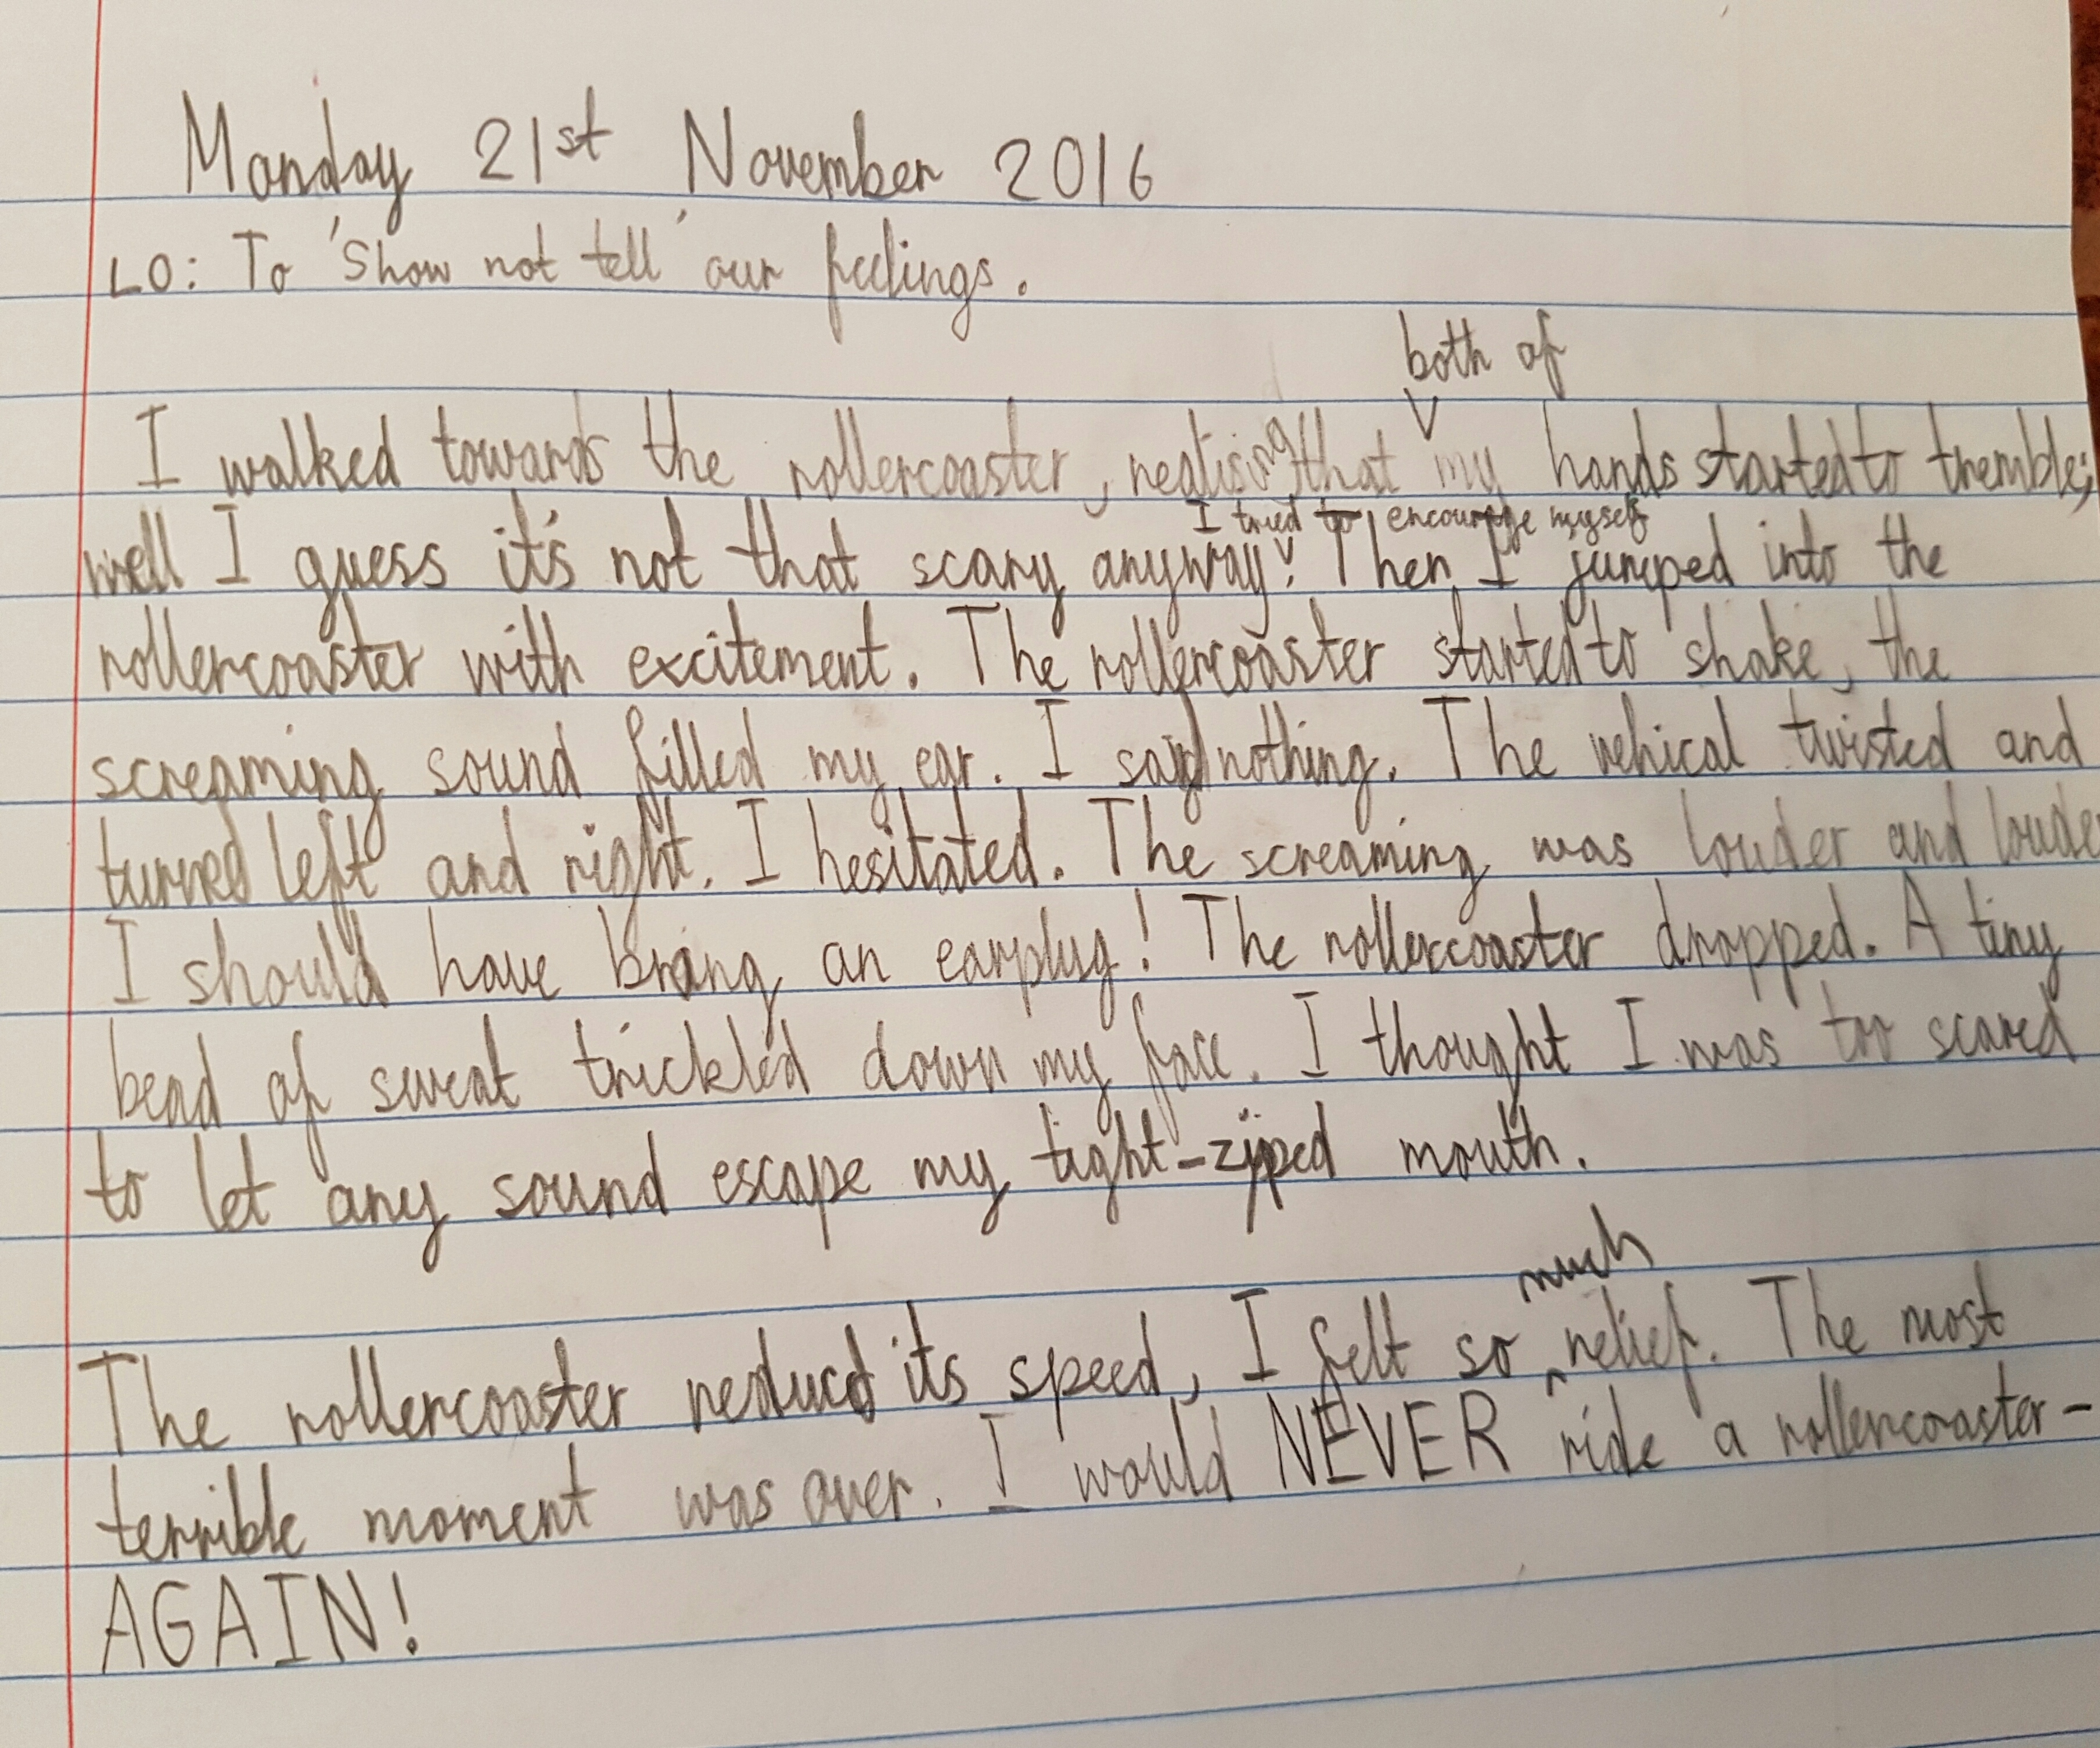 Monday 21st November 2016
LO: To 'Show not tell' our feelings.
both of
I walked towards the rollercoaster, realising that my hands started to tremble;
I tried to encourage myself
well I guess it's not that scary anyway! Then I jumped into the
rollercoaster with excitement. The rollercoaster started to shake, the
screaming sound filled my ear. I said nothing. The vehical twisted and
turned left and right. I hesitated. The screaming was louder and louder
I should have bring an earplug! The rollercoaster dropped. A tiny
bead of sweat trickled down my face. I thought I was too scared
to let any sound escape my tight-zipped mouth.
much
The rollercoaster reduced its speed, I felt so relief. The most
terrible moment was over. I would NEVER ride a rollercoaster-
AGAIN!